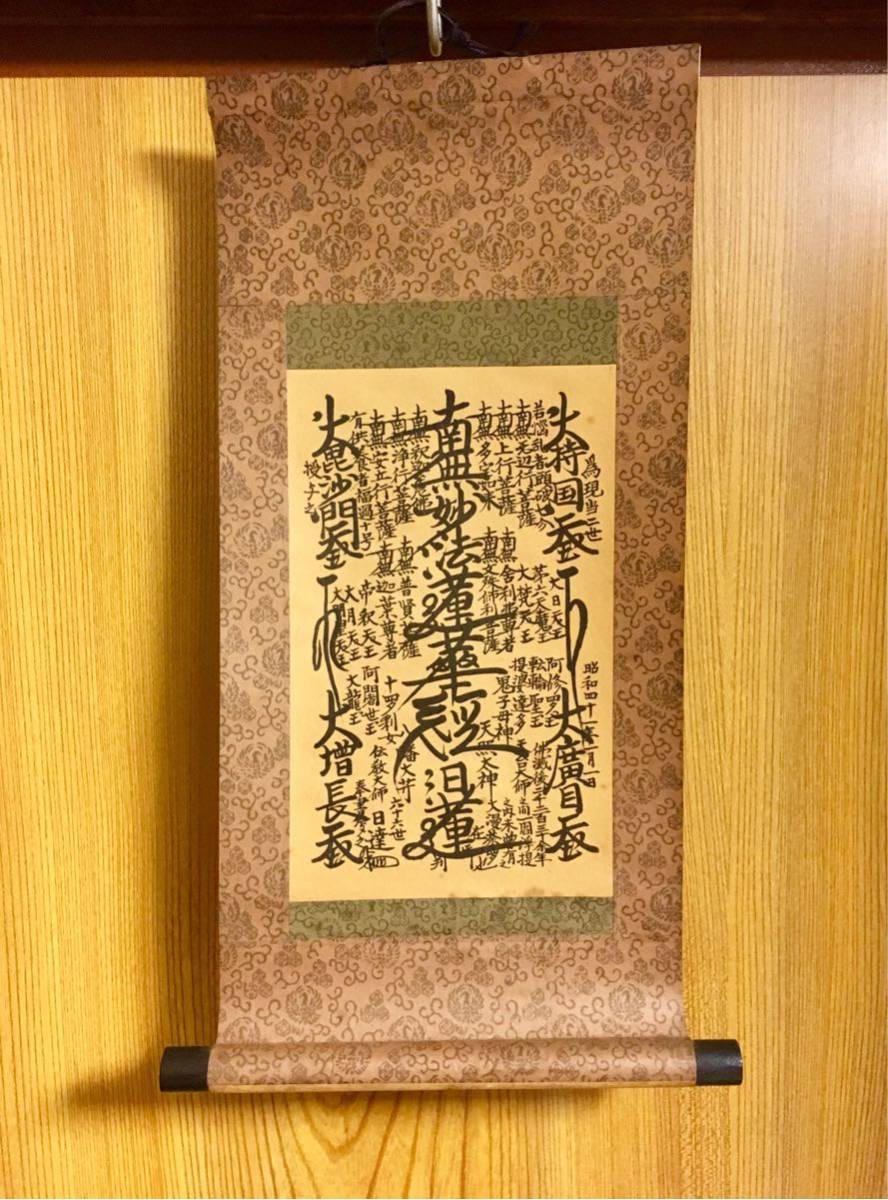 為現当二世
昭和四十一年一月一日
大持国天王
大廣目天王
若悩乱者頭破七分
南無無辺行菩薩
南無上行菩薩
南無多宝如来
南無舎利弗尊者
南無文殊師利菩薩
大日天王
第六天魔王
大梵天王
阿修羅王
転輪聖王
提婆達多
鬼子母神
天照太神
天台大師
佛滅後二千二百三十余年
之間一閻浮提
之内未曾有
大漫荼羅也
南無妙法蓮華経
日蓮
在御判
南無釈迦牟尼佛
南無浄行菩薩
南無安立行菩薩
有供養者福過十号
南無普賢菩薩
南無迦葉尊者
帝釈天王
大月天王
大明星天王
十羅刹女
阿闍世王
大龍王
八幡大菩薩
伝教大師
六十六世
日達
奉書写之
大毘沙門天王
大増長天王
授与之